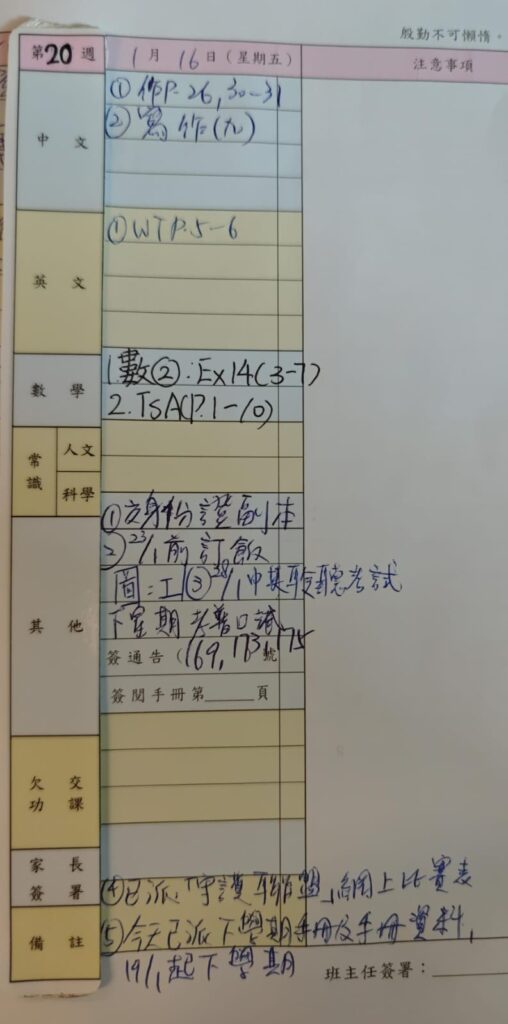 殷勤不可懶惰。
第20週 1月16日(星期五) 注意事項
中文 ①作P.26,30-31
②寫作(九)
英文 ①WTP.5-6
數學 1數②:Ex14(3-7)
2.TSA(P.1-10)
常識 人文
科學
其他 ①交身份證副本
②23/1前訂飯
圖:工③ 中英聆聽考試
下星期考普口試
簽通告(169,173,175號
簽閱手冊第____頁
欠交功課
家長簽署 ④已派「守護聯盟」網上比賽表
備註 ⑤今天已派下學期手冊及手冊資料,
19/1起下學期
班主任簽署: